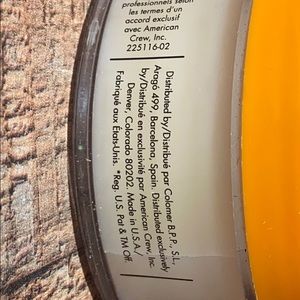 professionnels selon
les termes d'un
accord exclusif
avec American
Crew, Inc.
225116-02
Distributed by/Distribué par Colomer B.P.P., S.L.,
Aragó 499, Barcelona, Spain. Distributed exclusively
by/Distribué en exclusivité par American Crew, Inc.
Denver, Colorado 80202. Made in U.S.A.,
Fabriqué aux États-Unis. *Reg. U.S. Pat & TM Off.